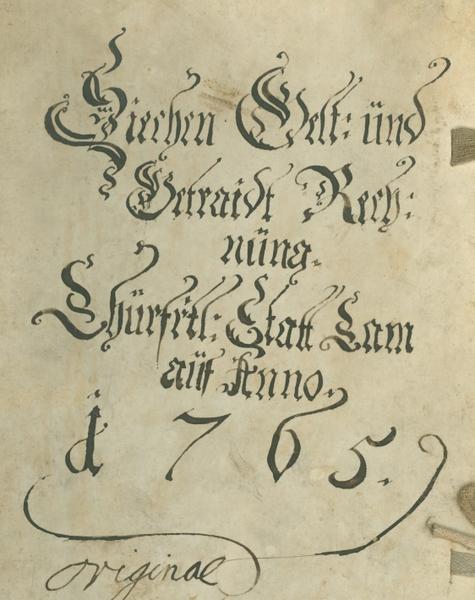 Siechen Gelt: und
Getraidt Rech:
nüng.
Chürfrtl: Statt Cam
aüf Anno.
1765.
original